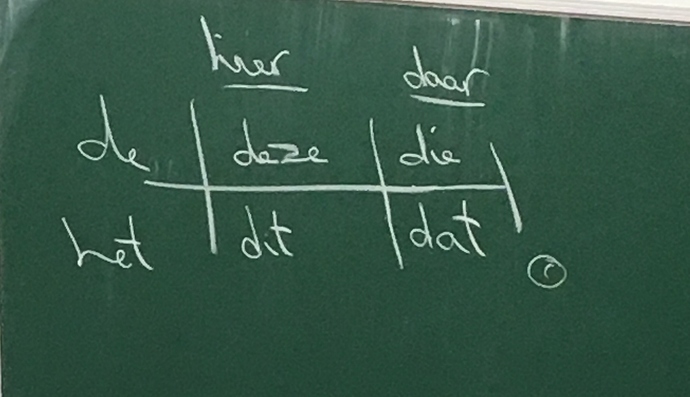 hier daar
de deze die
het dit dat